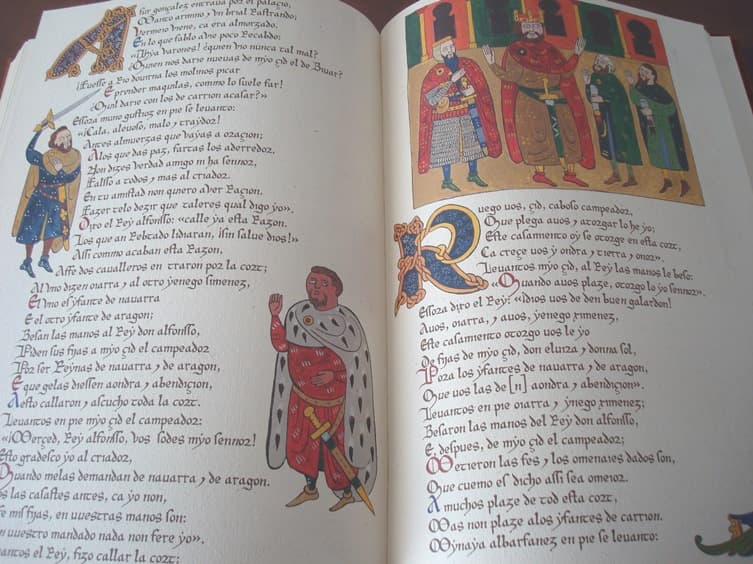 Asur gonçalez entraua por el palaçio,
Manto armino y un brial Rastrando;
Vermeio viene, ca era almorzado.
En lo que fablo aue poco Recabdo:
«¡Hya varones! ¿quien vio nunca tal mal?
¿Quien nos darie nueuas de myo çid el de Biuar?
¡Fuesse a Rio douirna los molinos picar
E prender maquilas, commo lo suele far!
¿Quil darie con los de carrion acasar?»
Essora muno gustioz en pie se leuanto:
«¡Cala, aleuoso, malo y traydor!
Antes almuerzas que vayas a oraçion;
Alos que das paz, fartas los aderredor.
Non dizes verdad amigo ni ha sennor,
Falsso a todos y mas al criador.
En tu amistad non quiero aver Raçion.
Fazer telo dezir que taleres qual digo yo».
Dixo el Rey alfonsso: «calle ya esta Razon.
Los que an Rebtado lidiaran, ¡sin salue dios!»
Assi commo acaban esta Razon,
Affe dos caualleros en traron por la cort;
Al vno dizen oiarra y al otro yenego simenez,
El vno es yfante de nauarra
E el otro yfante de aragon;
Besan las manos al Rey don alfonsso,
Piden sus fijas a myo çid el campeador
Por ser Reynas de nauarra y de aragon,
E que gelas diessen aondra y abendiçion,
A esto callaron y ascucho toda la cort.
Leuantos en pie myo çid el campeador:
«¡Merçed, Rey alfonsso, vos sodes myo sennor!
Esto gradesco yo al criador,
Quando melas demandan de nauarra y de aragon.
os las casastes antes, ca yo non,
fe mis fijas, en vuestras manos son:
n vuestro mandado nada non fere yo».
uantos el Rey, fizo callar la cort:
Ruego uos, çid, caboso campeador,
Que plega auos, y atorgar lo he yo;
Este casamiento oy se otorge en esta cort,
Ca creçe uos y ondra y tierra y onor».
Leuantos myo çid, al Rey las manos le beso:
«Quando auos plaze, otorgo lo yo sennor».
Essora dixo el Rey: «¡Dios uos de den buen galardon!
Auos, oiarra, y auos, yenego ximenez,
Este casamiento otorgo uos le yo
De fijas de myo çid, don eluira y donna sol,
Pora los yfantes de nauarra y de aragon,
Que uos las de[n] aondra y abendiçion».
Leuantos en pie oiarra y ynego ximenez;
Besaron las manos del Rey don alfonsso,
E, despues, de myo çid el campeador;
Metieron las fes y los omenaies dados son,
Que cuemo es dicho assi sea omeior.
A muchos plaze de tod esta cort,
Mas non plaze alos yfantes de carrion.
Mynaya albarfanez en pie se leuanto: